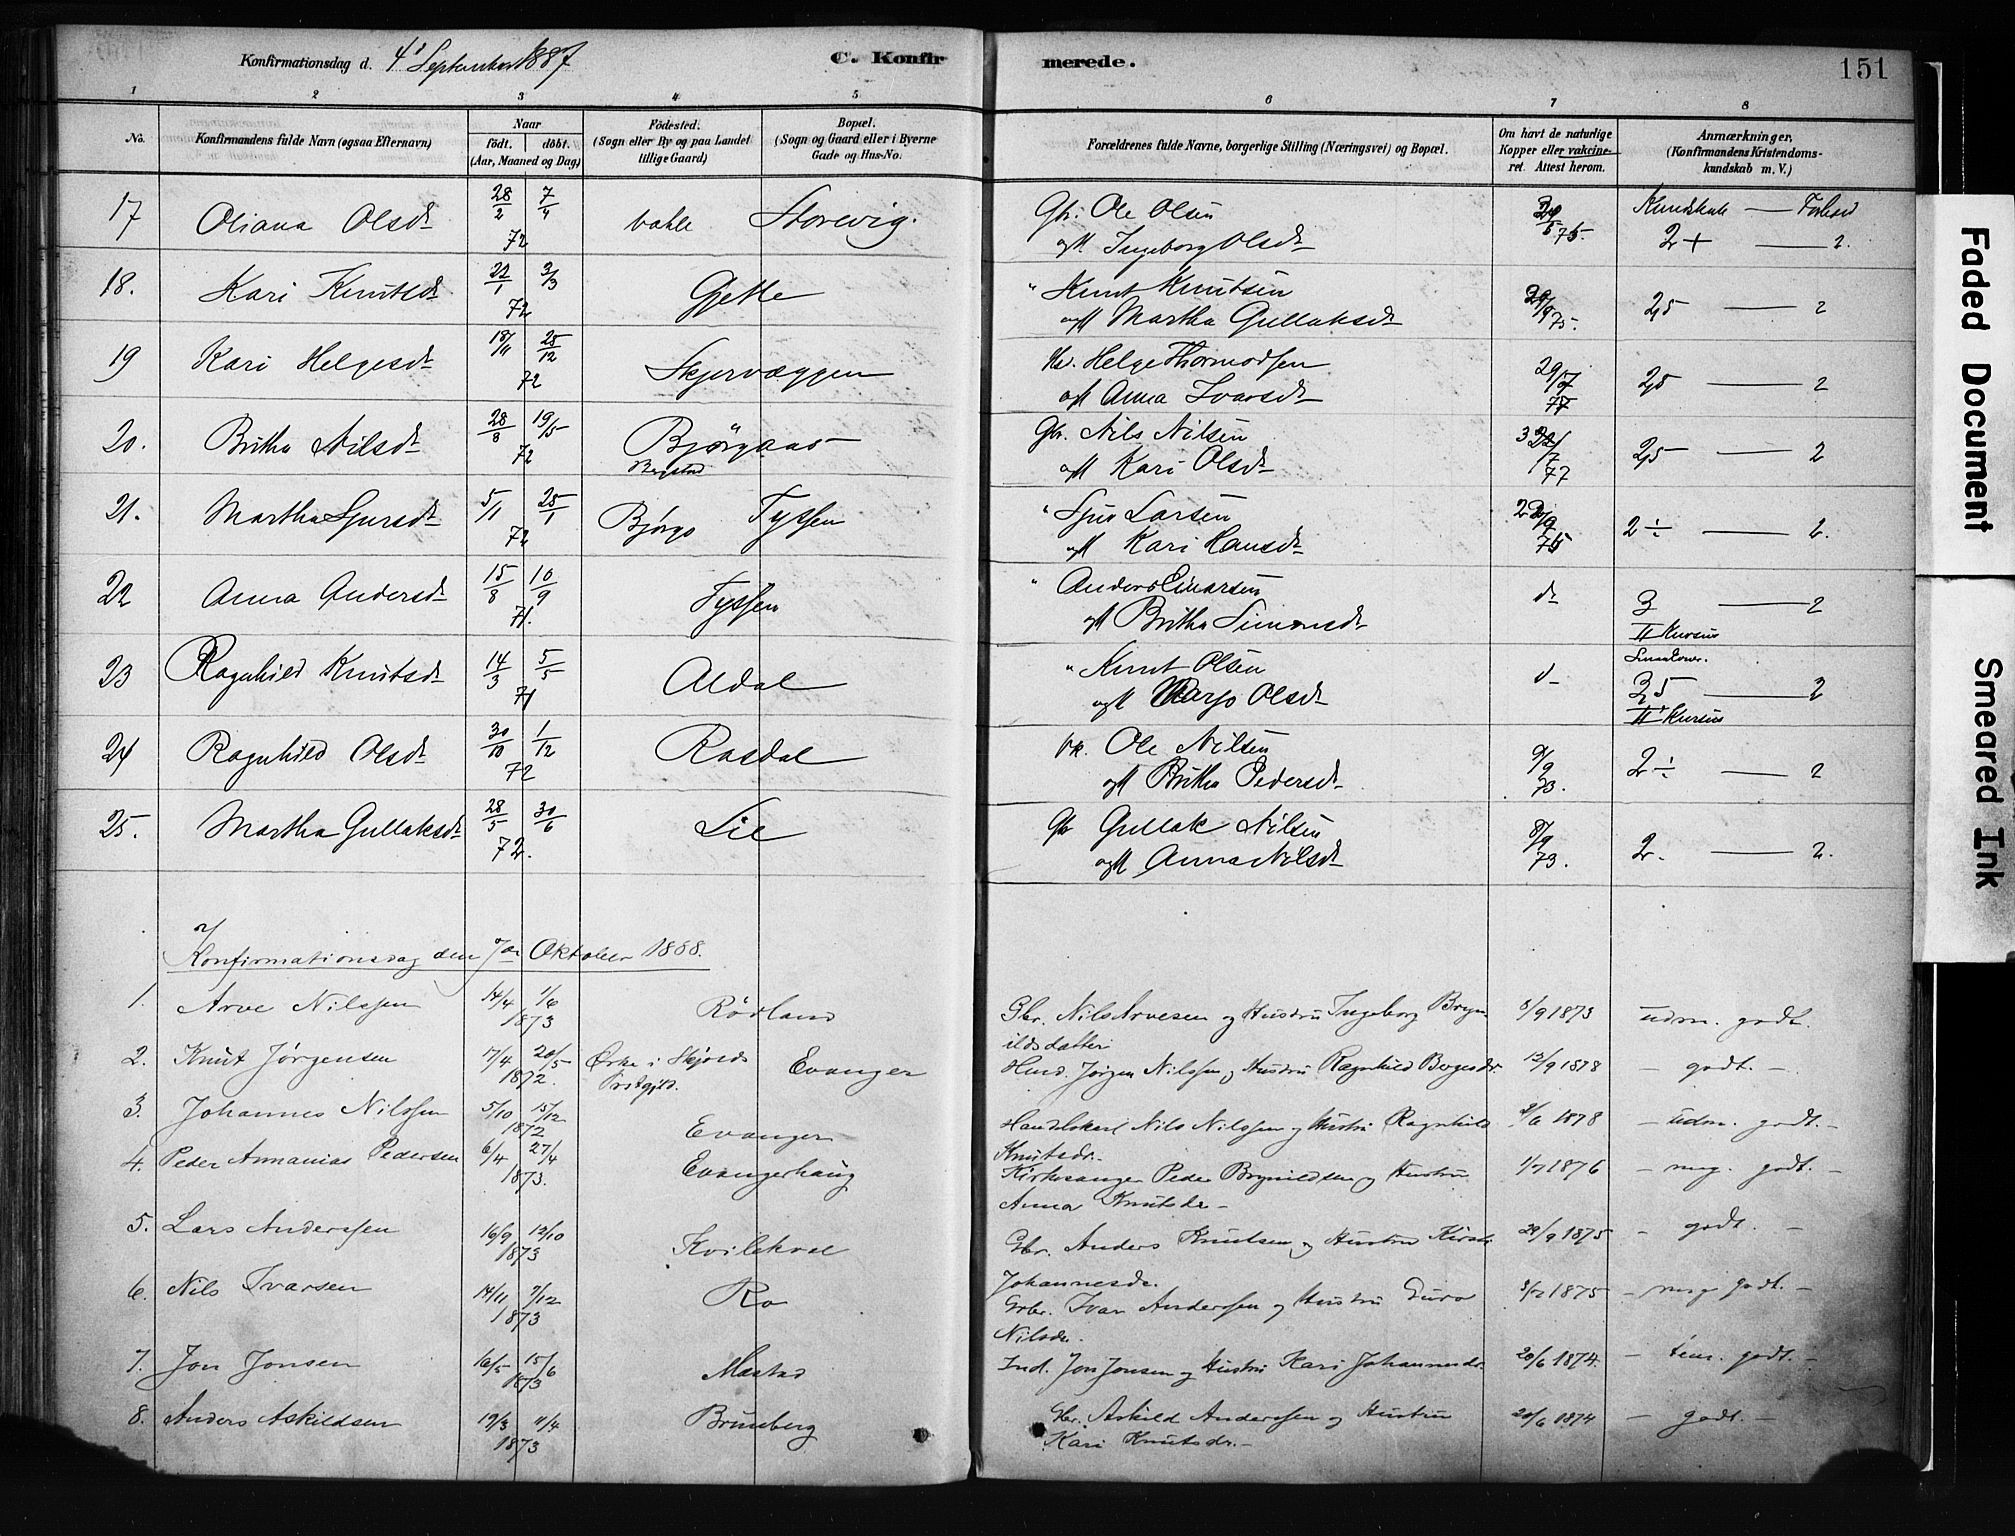 Konfirmationsdag d. 4' September 1887
C. Konfirmerede.
151
1 2 3 4 5 6 7 8
No.
Konfirmandens fulde Navn (ogsaa Efternavn)
Naar
födt. döbt.
(Aar, Maaned og Dag)
Födested.
(Sogn eller By og paa Landet
tillige Gaard)
Bopæl.
(Sogn og Gaard eller i Byerne
Gade og Hus-No.
Forældrenes fulde Navne, borgerlige Stilling (Næringsvei) og Bopæl.
Om havt de naturlige
Kopper eller vakcine-
ret. Attest herom.
Anmærkninger.
(Konfirmandens Kristendoms-
kundskab m. V.)
17 Oliana Olsdt 28/2 7/4 72 Storevig. Gbr. Ole Olsen
ogH. Ingeborg Olsdt 75. Kundskab — Forhold
2+ — 2.
18. Kari Knutsdt 22/1 3/3 72 Gjelle " Knut Knutsen
ogH Martha Gullaksdt 75. 2,5 — 2
19 Kari Helgesdt 18/11 25/12 72 Skjervæggen Helge Thormodsen
ogH Anna Ivarsdt 29/7 77 2,5 — 2
20. Britha Nilsdt 28/8 19/5 72 Gbr. Nils Nilsen
ogH Kari Olsdt 77 2,5 — 2
21. Martha Sjursdt 5/11 25/1 72 Bjørgo Tyssen " Sjur Larsen
ogH Kari Hansdt 75 2÷ — 2.
22 Anna Andersdt 15/8 10/9 71. Tyssen " Anders Einarsen
ogH Britha Simonsdt dt 3 — 2
II Kursus
23 Ragnhild Knutsdt 14/3 5/5 71 Aldal " Knut Olsen
ogH Marjo Olsdt d- 3,5 — 2
II Kursus
24 Ragnhild Olsdt 30/10 1/12 72 Rasdal Ole Nilsen
ogH Britha Pedersdt 9/9 73. 2÷ — 2
25. Martha Gullaksdt 28/5 30/6 72. Lie Gbr Gullak Nilsen
ogH Anna Nilsdt 8/9 73. 2. — 2.
Konfirmationsdag den 7de Oktober 1888.
1. Arve Nilssen 14/4 1/6 1873 Rödland Gbr. Nils Arvesen og Hustru Ingeborg Bryn
ildsdatter 8/9 1873 udm. godt.
2. Knut Jørgensen 17/4 20/5 1872. Ørke i Skjolds
Prstgjld. Evanger Husd. Jørgen Nilssen og Hustru Ragnhild Bergesdr. 12/9 1878 – godt. –
3. Johannes Nilssen 5/10 15/12 1872 Evanger Handelskarl Nils Nilssen og Hustru Ragnhild
Knutsdr. 1878 – udm. godt. –
4. Peder Annanias Pedersen 6/4 27/4 1873. Evangerhaug Kirkesanger Peder Brynildsen og Hustru
Anna Knutsdr. – 1/7 1876 – meg. godt. –
5. Lars Anderssen 16/9 12/10 1873 Kvilekval Gbr. Anders Knutsen og Hustru Kirsti
Johannesdr. 29/9 1875 – godt. –
6. Nils Ivarsen 14/11 7/12 1873 Ro Gbr. Ivar Anderssen og Hustru Guro
Nilsdr. 1875 – meg godt. –
7. Jon Jonsen 16/5 15/6 1873 Mæstad Ind. Jon Jonsen og Hustru Kari Johannesdr. 20/6 1874. – tem. godt. –
8. Anders Askildsen 19/3 11/4 1873 Brunberg Gbr. Askild Anderssen og Hustru
Kari Knutsdr. – 20/6 1874 – godt. –
Faded Document
Smeared Ink